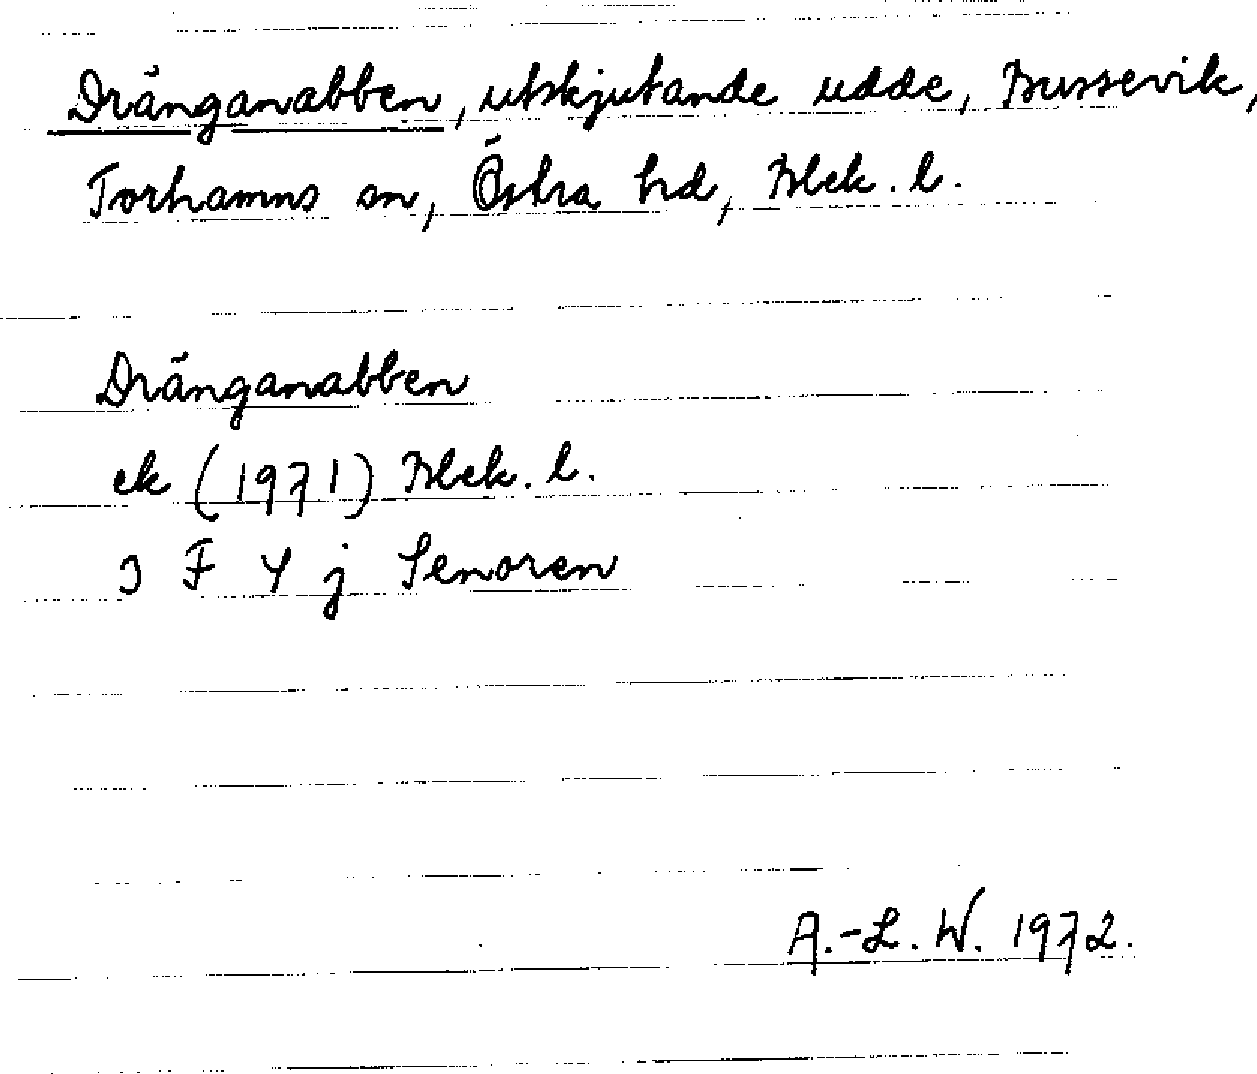 Dränganabben, utskjutande udde, Bussevik,
Torhamns sn, Östra hd, Blek. l.
Dränganabben
ek (1971) Blek. l.
3 F 4 j Senoren
A.-L. W. 1972.